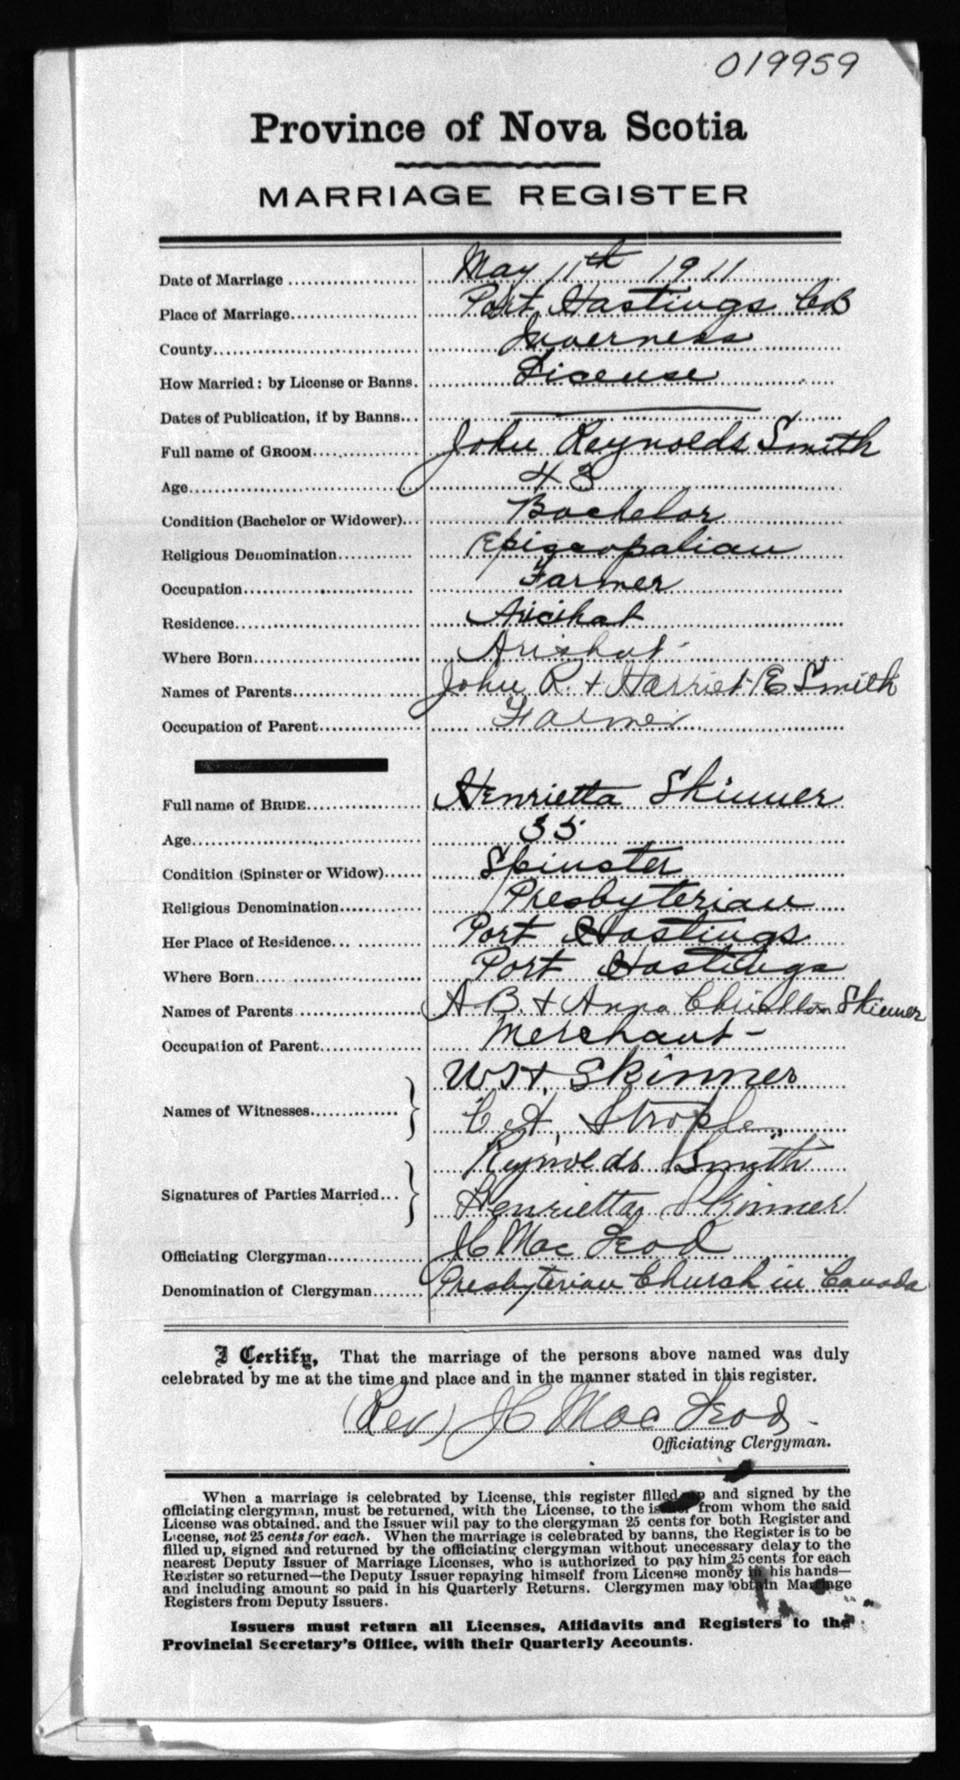 019959
Province of Nova Scotia
MARRIAGE REGISTER
Date of Marriage May 11th 1911
Place of Marriage Port Hastings CB
County Inverness
How Married: by License or Banns. License
Dates of Publication, if by Banns
Full name of GROOM John Reynolds Smith
Age 43
Condition (Bachelor or Widower) Bachelor
Religious Denomination Episcopalian
Occupation Farmer
Residence Aricihat
Where Born Arishat
Names of Parents John R. & Harriet E Smith
Occupation of Parent Farmer
Full name of BRIDE Henrietta Skinner
Age 35
Condition (Spinster or Widow) Spinster
Religious Denomination Presbyterian
Her Place of Residence Port Hastings
Where Born Port Hastings
Names of Parents A.B. & Anna Skinner
Occupation of Parent Merchant -
Names of Witnesses W H. Skinner
C. A. Strople
Signatures of Parties Married Reynolds Smith
Henrietta Skinner
Officiating Clergyman Mac Leod
Denomination of Clergyman Presbyterian Church in Canada
I Certify, That the marriage of the persons above named was duly
celebrated by me at the time and place and in the manner stated in this register.
(Rev) Mac Leod
Officiating Clergyman.
When a marriage is celebrated by License, this register filled up and signed by the
officiating clergyman, must be returned, with the License, to the issuer from whom the said
License was obtained, and the Issuer will pay to the clergyman 25 cents for both Register and
License, not 25 cents for each. When the marriage is celebrated by banns, the Register is to be
filled up, signed and returned by the officiating clergyman without unecessary delay to the
nearest Deputy Issuer of Marriage Licenses, who is authorized to pay him 25 cents for each
Register so returned—the Deputy Issuer repaying himself from License money in his hands—
and including amount so paid in his Quarterly Returns. Clergymen may obtain Marriage
Registers from Deputy Issuers.
Issuers must return all Licenses, Affidavits and Registers to the
Provincial Secretary's Office, with their Quarterly Accounts.